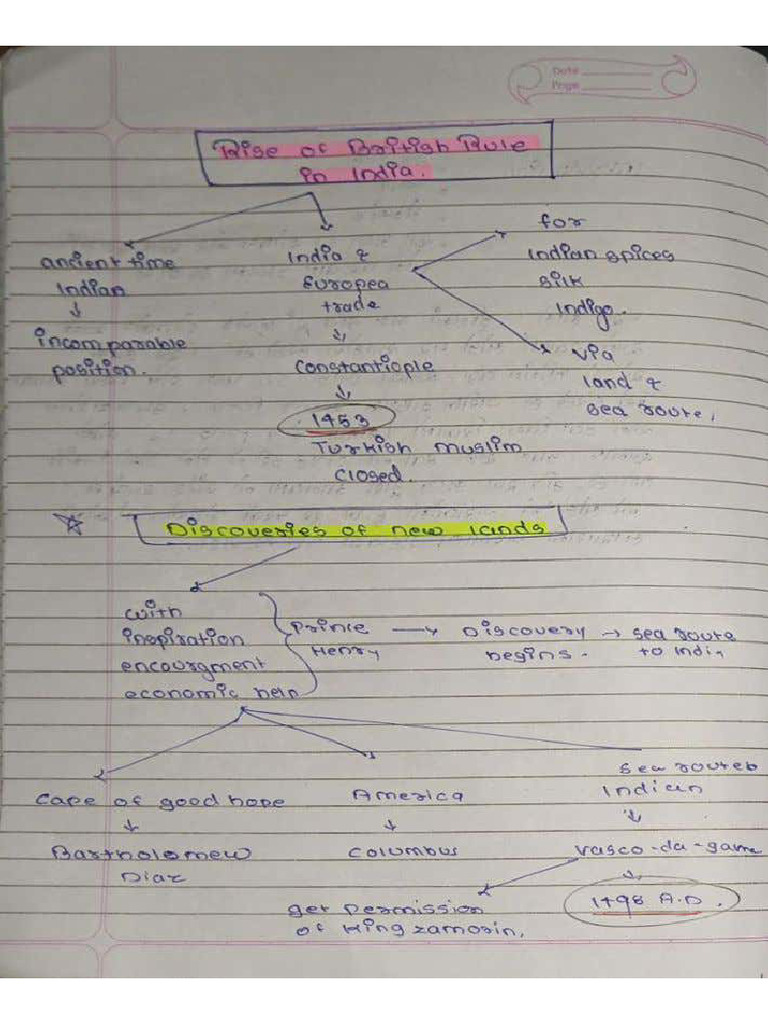 Date
Page
Rise of British Rule
in India.
ancient time
Indian
↓
incomparable
position.
India &
Europea
trade
↓
constantiople
↓
1453
Turkish muslim
closed.
for
Indian spices
silk
indigo.
via
land &
sea route,
Discoveries of new lands
with
inspiration
encourgment
economic help
Prince
Henry
→ Discovery
begins.
→ sea route
to India
cape of good hope
↓
Bartholomew
Diaz
America
↓
columbus
sea routes
Indian
↓
vasco-da-gama
↓
1498 A.D.
get permission
of king zamorin,